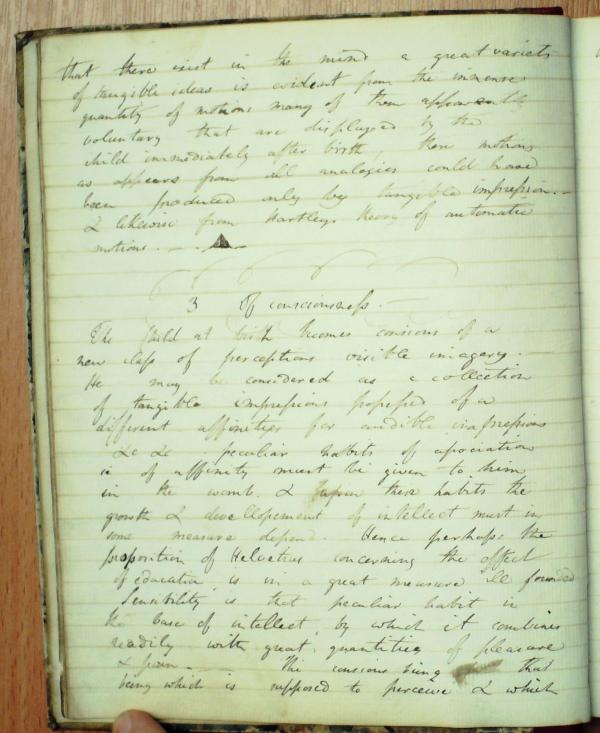 that there exist in the mind a great variety
of tangible ideas is evident from the immense
quantity of motions many of them apparently
voluntary that are displayed by the
child immediately after birth, these motions
as appears from all analogies could have
been produced only by tangible impression. -
& likewise from Hartleys theory of automatic
motions. -
3 Of consciousness. -
The child at birth becomes conscious of a
new class of perceptions visible imagery.
He may be considered as a collection
of tangible impressions possessed of a
different affinities for audible impressions
&c &c peculiar habits of association
or of affinity must be given to him
in the womb. & upon these habits the
growth & developement of intellect must in
some measure depend. Hence perhaps the
proposition of Helvetius concerning the effect
of education, is in a great measure ill founded
Sensibility is that peculiar habit in
the base of intellect, by which it combines
readily with great quantities of pleasure
& pain. - The conscious being that
being which is supposed to perceive & which